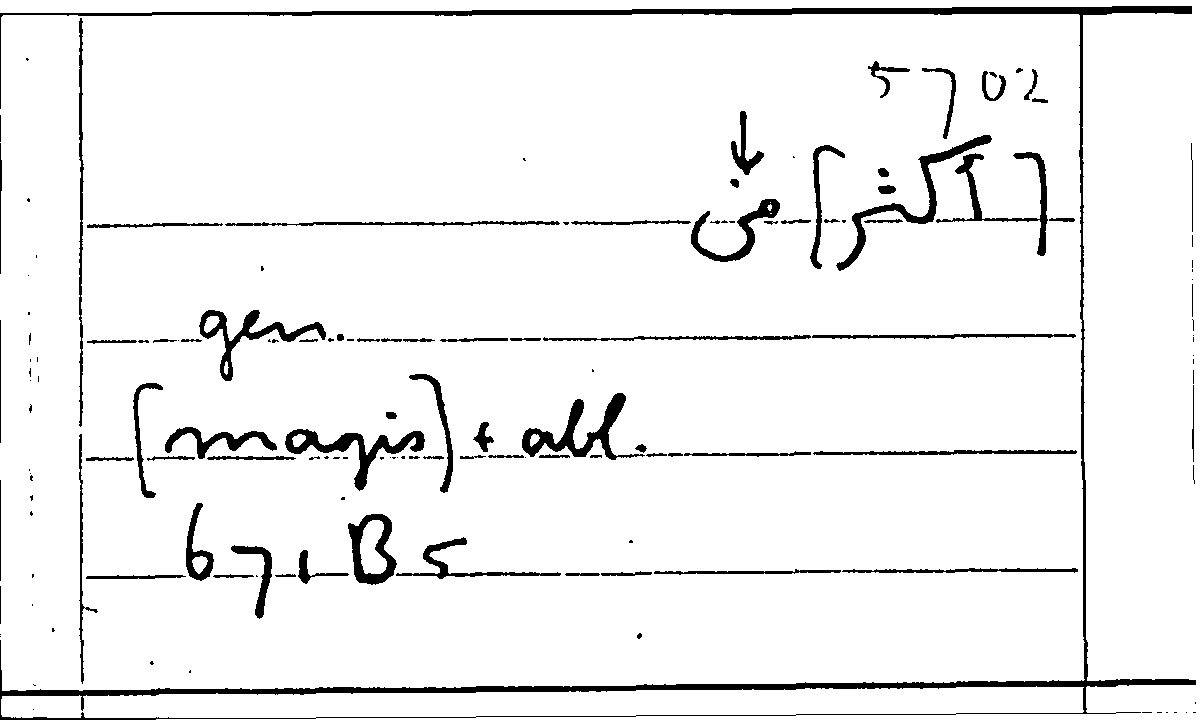 5702
[اكثر] من
gen.
[magis] + abl.
671 B5